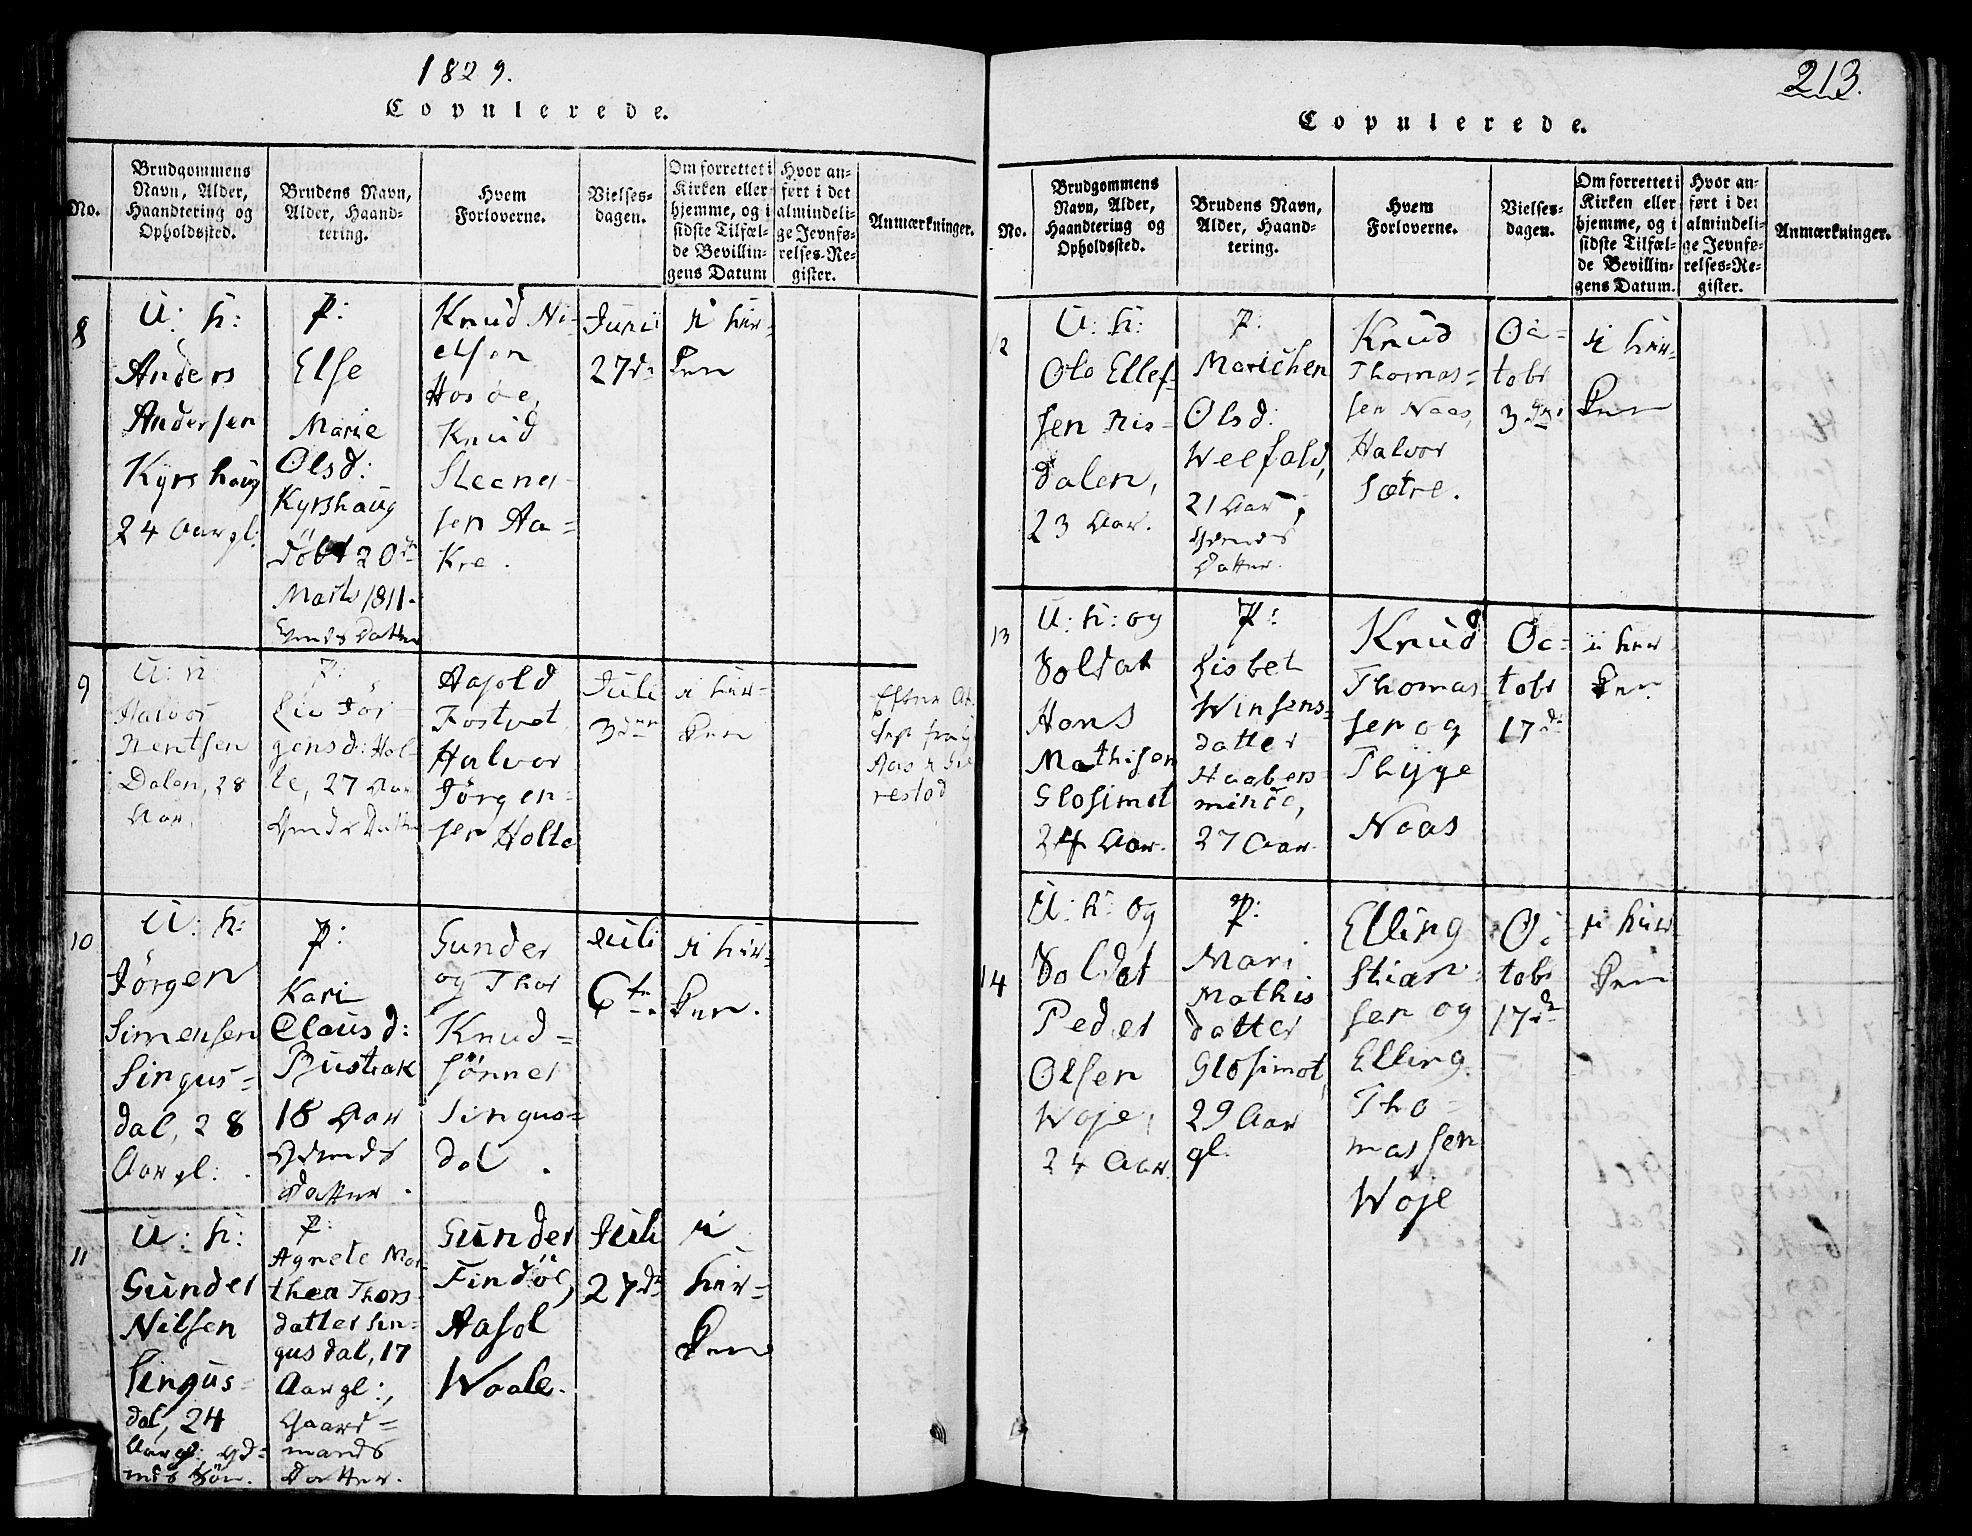 1829.
Copulerede.
No.
Brudgommens
Navn, Alder,
Haandtering og
Opholdssted.
Brudens Navn,
Alder, Haand-
tering.
Hvem
Forloverne.
Vielses-
dagen.
Om forrettet i
Kirken eller
hjemme, og i
sidste Tilfæl-
de Bevillin-
gens Datum
Hvor an-
ført i det
almindeli-
ge Jevnfø-
relses-Re-
gister.
Anmærkninger.
8
U: K:
Anders
Andersen
Kyrshaug
24 Aar gl:
P:
Else
Marie
Olsd:
Kyrshaug
döbt 20de
Marts 1811.
Gmds Datter
Knud Ni-
elsen
Hosöe,
Knud
Steener-
sen Aa-
kre.
Junii
27de
i Kir-
ken
9
U: K
Halvor
Nentsen
Dalen, 28
Aar.
P:
Liv Jör-
gensd: Hol-
te, 27 Aar
Gmds Datter
Aasold
Tostvet
Halvor
Jörgen-
sen Holte
Juli
3die
i Kir-
ken
Efter At-
test fra
Aas i
restad
10
U: K:
Jörgen
Simensen
Singus-
dal, 28
Aar gl:
P:
Kari
Clausd:
Rustrak
18 Aar
Gdmds
Datter.
Gunder
og Thor
Knud-
sönner
Singus-
dal.
Juli
6te
i Kir-
ken.
11
U: K:
Gunder
Nilsen
Singus-
dal, 24
Aar gl: Gd-
mds Sön.
P:
Agnete Mar-
thea Thors-
datter Sin-
gusdal, 17
Aar gl:,
Gaard-
mands
Datter.
Gunder
Findöe,
Aasol
Woale.
Juli
27de
i
Kir-
ken
213.
Copulerede.
No.
Brudgommens
Navn, Alder,
Haandtering og
Opholdssted.
Brudens Navn,
Alder, Haand-
tering.
Hvem
Forloverne.
Vielses-
dagen.
Om forrettet i
Kirken eller
hjemme, og i
sidste Tilfæl-
de Bevillin-
gens Datum.
Hvor an-
ført i det
almindeli-
ge Jevnfø-
relses-Re-
gister.
Anmærkninger.
12
U: K:
Ole Ellef-
sen Nis-
dalen,
23 Aar.
P:
Marichen
Olsd:
Weefald,
21 Aar,
Gdmds
Datter.
Knud
Thomas-
sen Naas,
Halvor
Sætre.
Oc-
tobr
3die
i Kir-
ken
13
U: K: og
Soldat
Hans
Mathisen
Glosimot
24 Aar.
P:
Lisbet
Winsens-
datter
Haabers-
minde,
27 Aar
Knud
Thomas-
sen og
Thyge
Naas
Oc-
tobr
17de
i Kir
ken
14
U: K: og
Soldat
Peder
Olsen
Woje,
24 Aar.
P:
Mari
Mathis
datter
Glosimot,
29 Aar
gl.
Elling
Stian-
sen og
Elling
Tho-
massen
Woje
Oc-
tobr
17de
i Kir-
ken